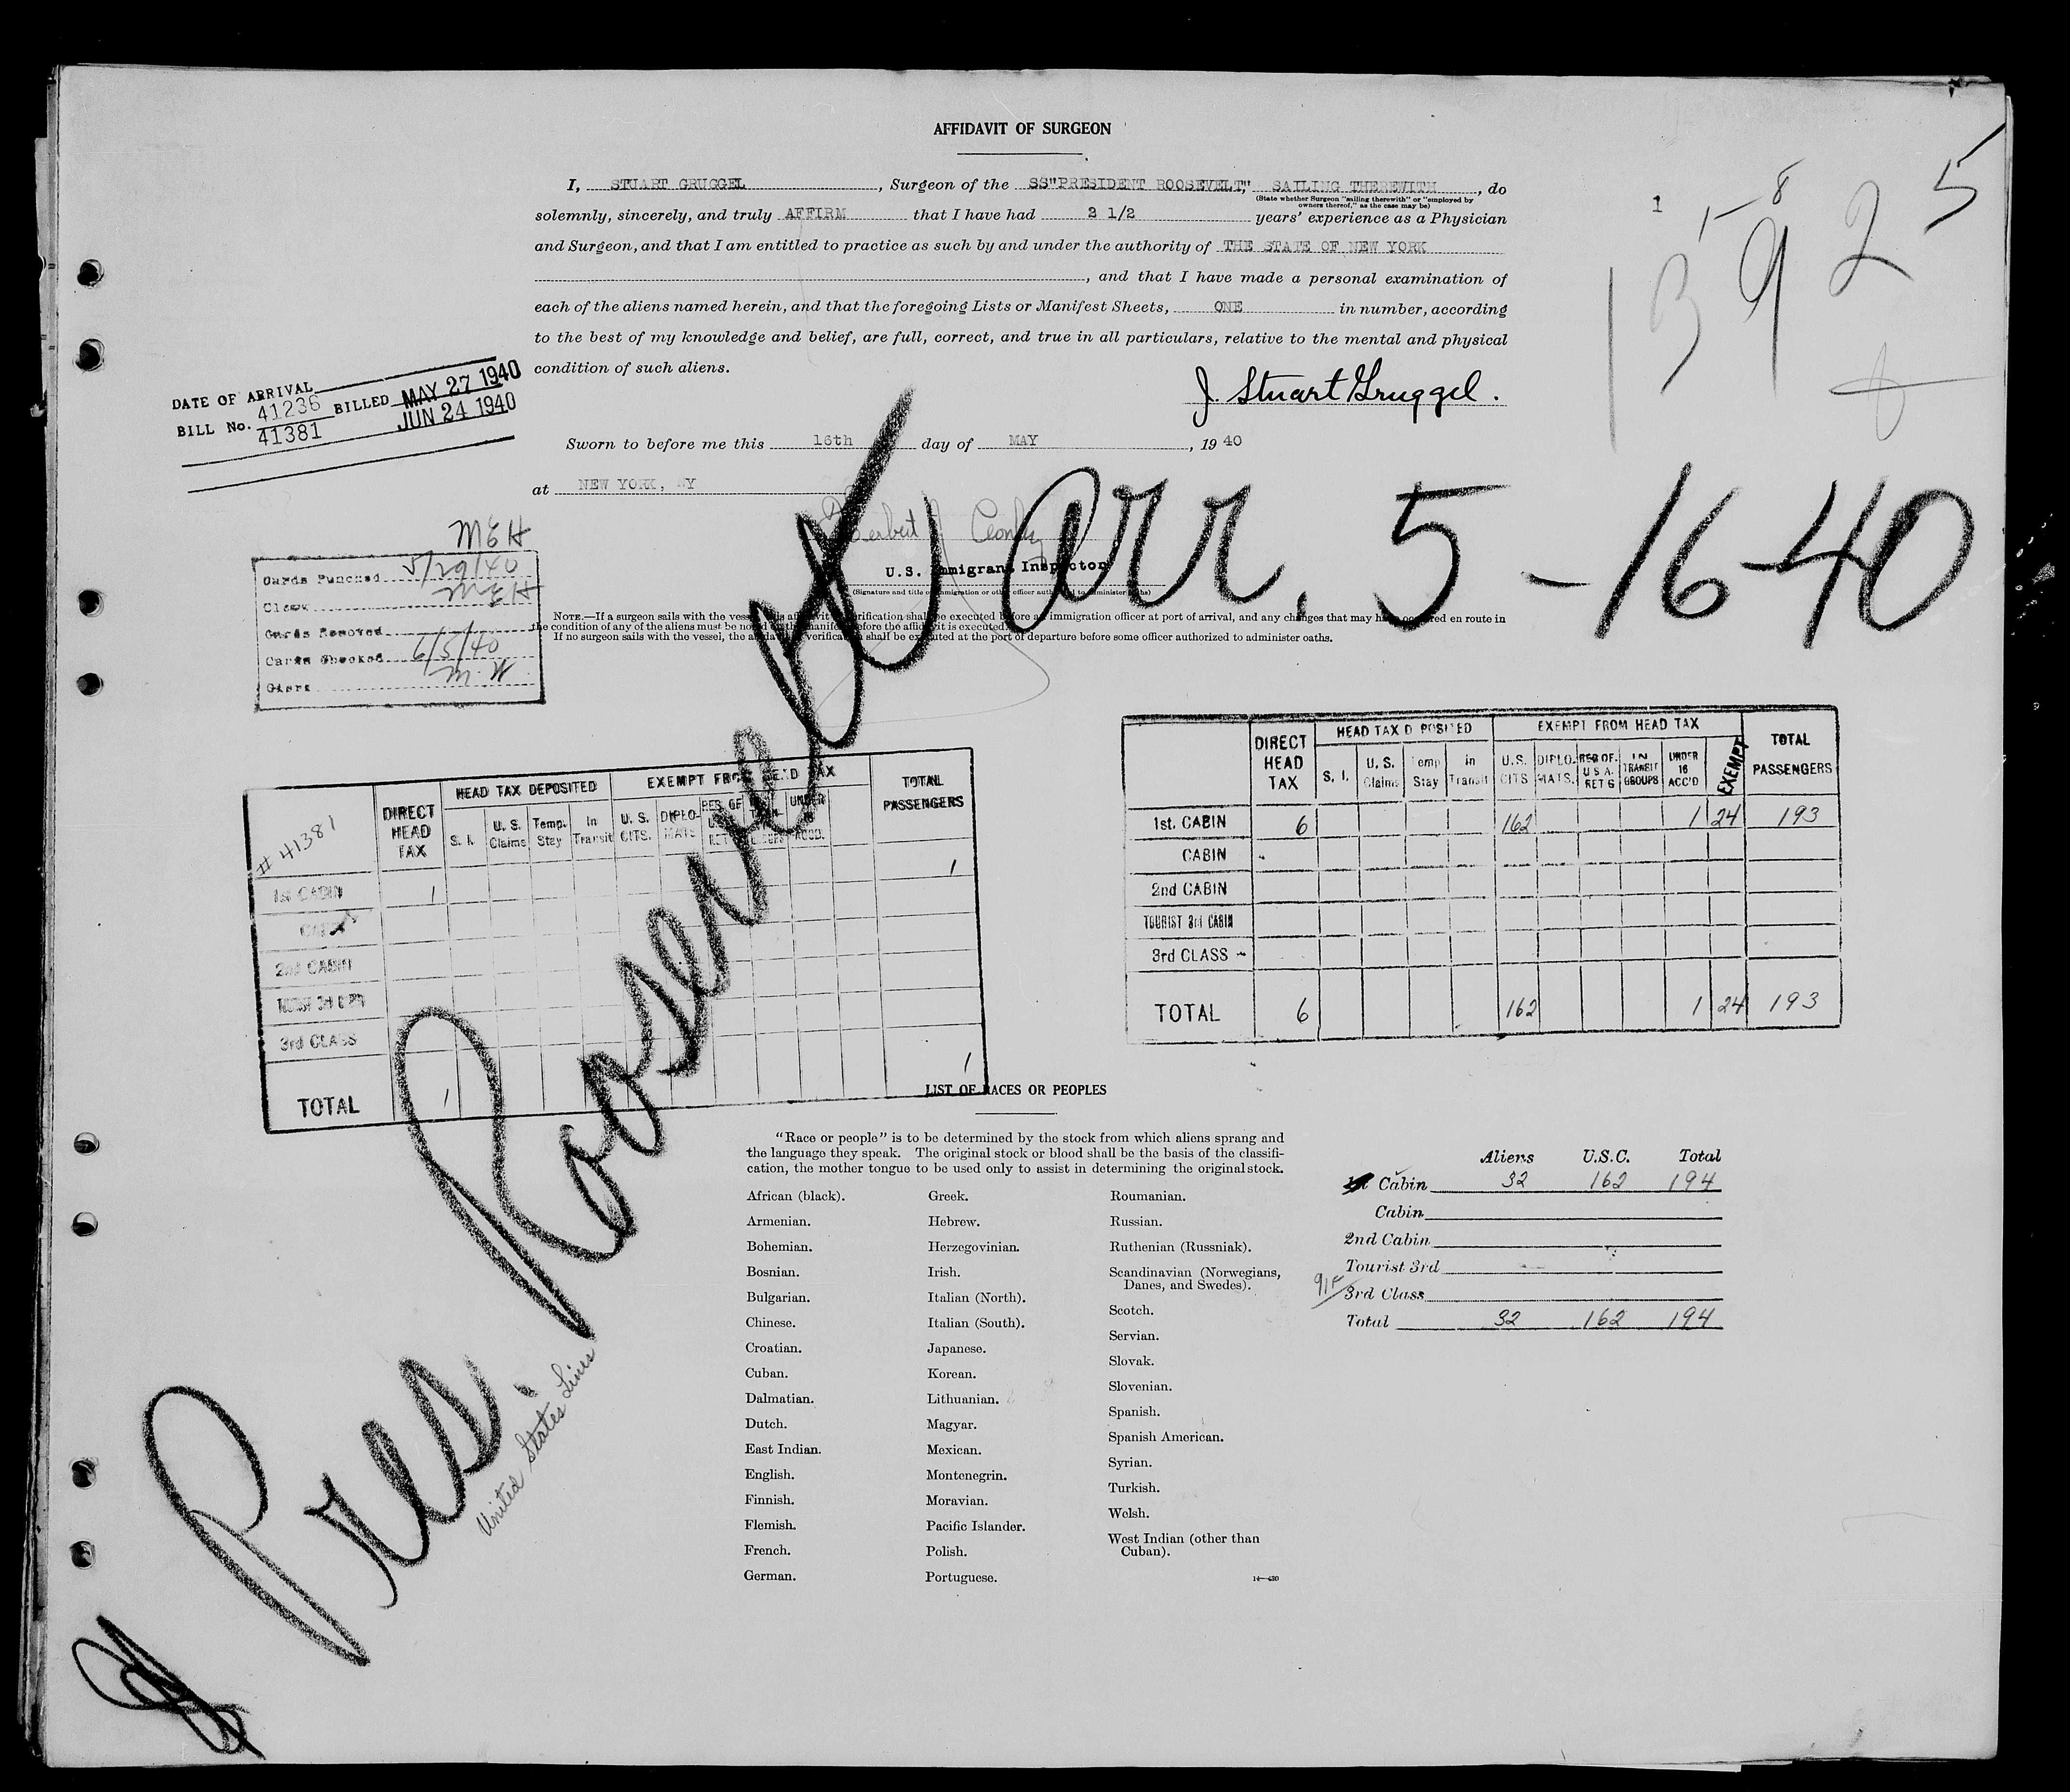 AFFIDAVIT OF SURGEON
I, STUART GRUGGEL, Surgeon of the SS"PRESIDENT ROOSEVELT," SAILING THEREWITH, do
(State whether Surgeon "sailing therewith" or "employed by owners thereof," as the case may be)
solemnly, sincerely, and truly AFFIRM that I have had 2 1/2 years' experience as a Physician
and Surgeon, and that I am entitled to practice as such by and under the authority of THE STATE OF NEW YORK
, and that I have made a personal examination of
each of the aliens named herein, and that the foregoing Lists or Manifest Sheets, ONE in number, according
to the best of my knowledge and belief, are full, correct, and true in all particulars, relative to the mental and physical
condition of such aliens.
1
1-8
13925
J. Stuart Gruggel.
DATE OF ARRIVAL
41236 BILLED MAY 27 1940
BILL No. 41381 JUN 24 1940
Sworn to before me this 16th day of MAY, 1940
at NEW YORK, NY
Herbert
U.S. Immigrant Inspector
(Signature and title of immigration or other officer authorized to administer oaths)
NOTE.—If a surgeon sails with the vessel, his affidavit or verification shall be executed before an immigration officer at port of arrival, and any changes that may have occurred en route in
the condition of any of the aliens must be noted on the manifest before the affidavit is executed.
If no surgeon sails with the vessel, the affidavit or verification shall be executed at the port of departure before some officer authorized to administer oaths.
MEH
Cards Punched 5/29/40
Clerk MEH
Cards Removed
Cards Checked 6/3/40
Clerk M.W
Pres. Roosevelt arr. 5-16-40
United States Lines
# 41381
DIRECT HEAD TAX
HEAD TAX DEPOSITED
EXEMPT FROM HEAD TAX
TOTAL PASSENGERS
S. I. U. S. Claims Temp. Stay In Transit U. S. CITS. DIPLO-MATS.
1st CABIN 1 1
CABIN
2nd CABIN
TOURIST 3rd CABIN
3rd CLASS
TOTAL 1 1
DIRECT HEAD TAX
HEAD TAX DEPOSITED
EXEMPT FROM HEAD TAX
TOTAL PASSENGERS
S. I. U. S. Claims Temp Stay In Transit U.S. CITS DIPLO-MATS. RES OF. U S A. RET'G IN TRANSIT GROUPS UNDER 16 ACC'D EXEMPT
1st. CABIN 6 162 1 24 193
CABIN
2nd CABIN
TOURIST 3rd CABIN
3rd CLASS
TOTAL 6 162 1 24 193
LIST OF RACES OR PEOPLES
"Race or people" is to be determined by the stock from which aliens sprang and
the language they speak. The original stock or blood shall be the basis of the classifi-
cation, the mother tongue to be used only to assist in determining the original stock.
African (black).
Armenian.
Bohemian.
Bosnian.
Bulgarian.
Chinese.
Croatian.
Cuban.
Dalmatian.
Dutch.
East Indian.
English.
Finnish.
Flemish.
French.
German.
Greek.
Hebrew.
Herzegovinian.
Irish.
Italian (North).
Italian (South).
Japanese.
Korean.
Lithuanian.
Magyar.
Mexican.
Montenegrin.
Moravian.
Pacific Islander.
Polish.
Portuguese.
Roumanian.
Russian.
Ruthenian (Russniak).
Scandinavian (Norwegians,
Danes, and Swedes).
Scotch.
Servian.
Slovak.
Slovenian.
Spanish.
Spanish American.
Syrian.
Turkish.
Welsh.
West Indian (other than
Cuban).
14—430
Aliens U.S.C. Total
Cabin 32 162 194
Cabin
2nd Cabin
Tourist 3rd
3rd Class
Total 32 162 194